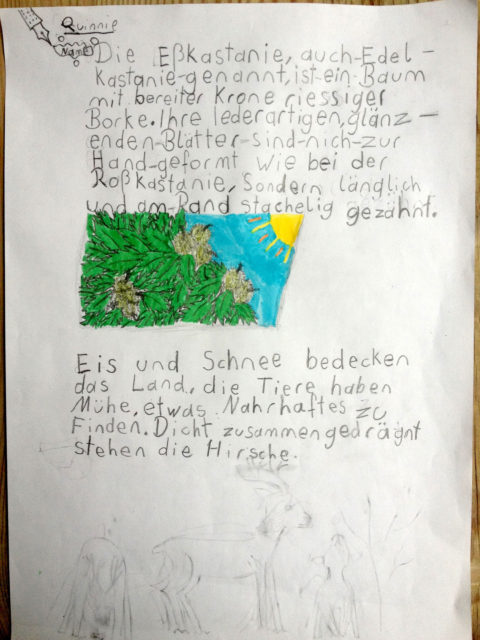 Quinnie
Name
Die Eßkastanie, auch-Edel-
kastanie-genannt, ist-ein-Baum
mit bereiter Krone riessiger
Borke. Ihre lederartigen, glänz-
enden-Blätter-sind-nich-zur
Hand-geformt wie bei der
Roßkastanie, Sondern länglich
und am-Rand stachelig gezähnt.
Eis und Schnee bedecken
das Land, die Tiere haben
Mühe, etwas Nahrhaftes zu
Finden. Dicht zusammengedrägnt
stehen die Hirsche.